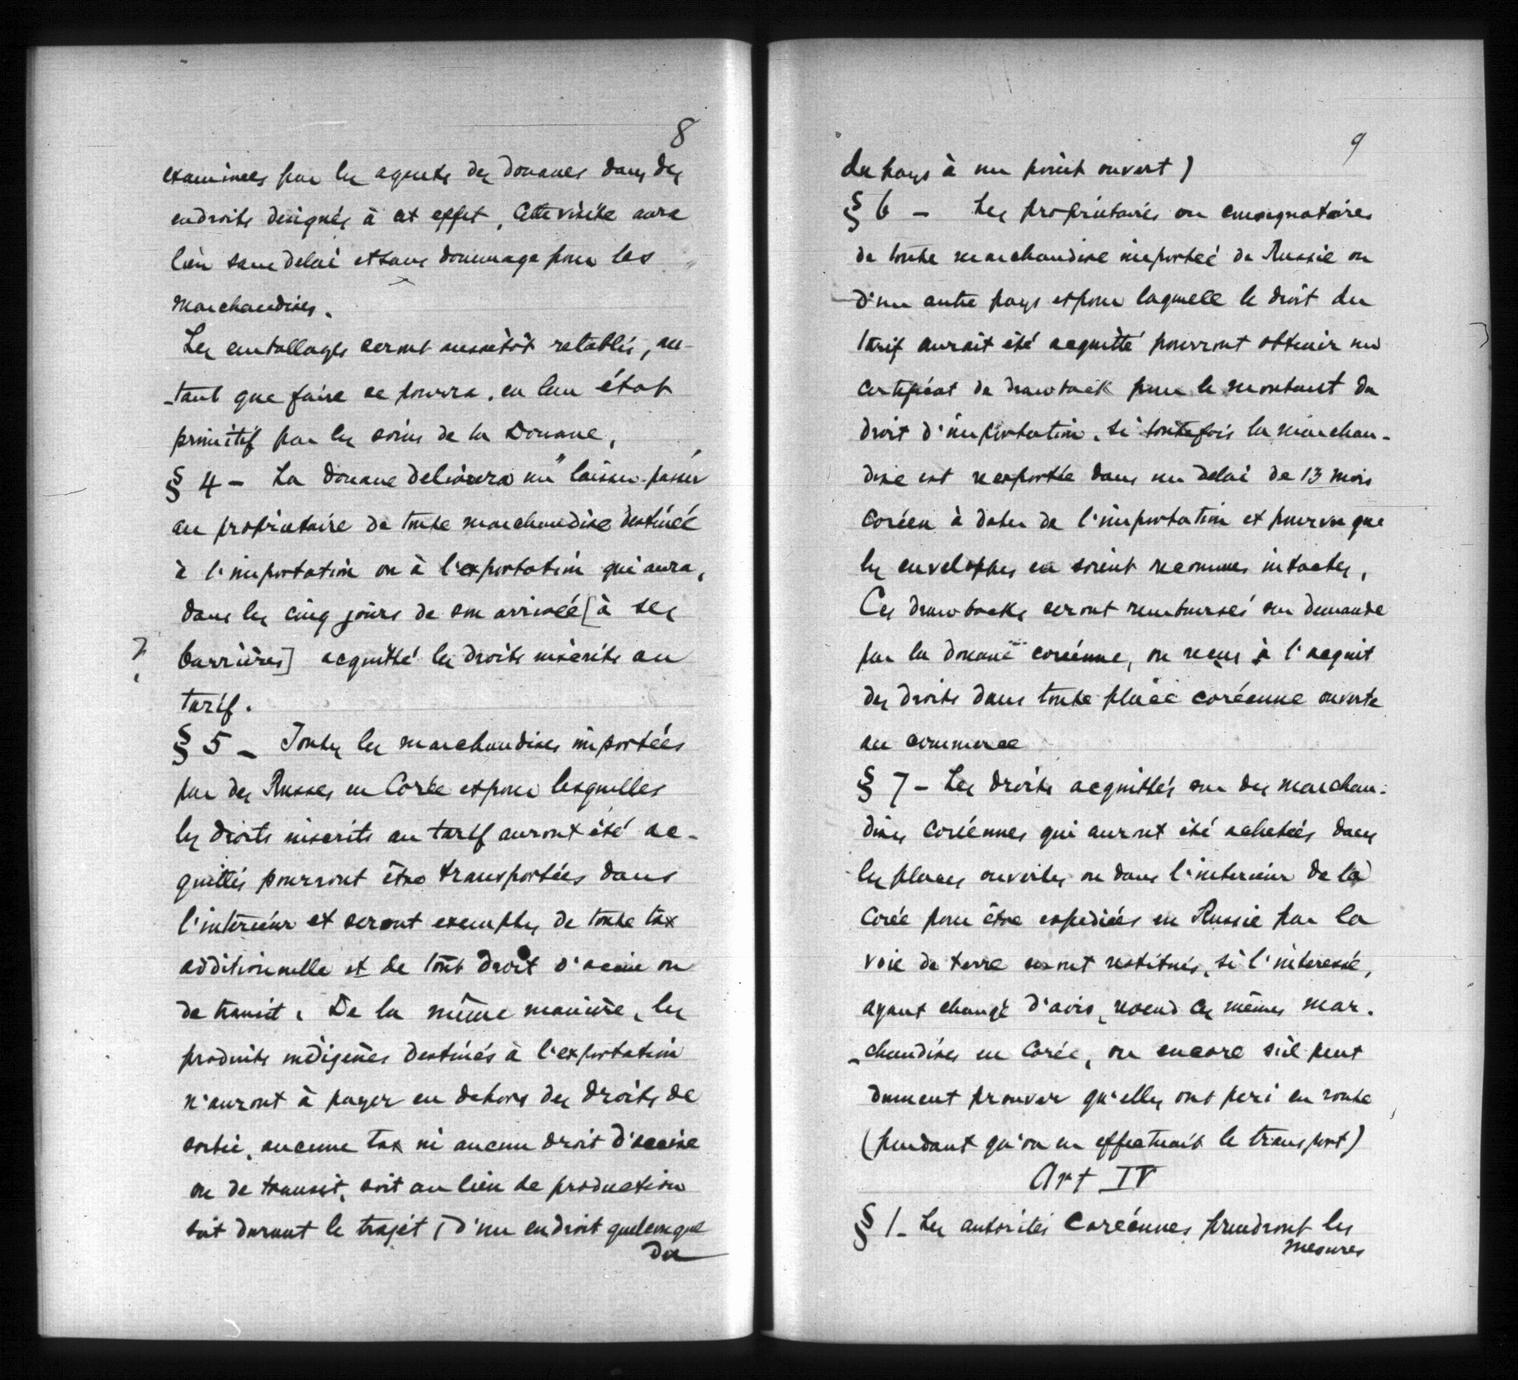 8
examinées par les agents des douanes dans des
endroits désignés à cet effet, Cette visite aura
lieu sans délai et sans dommage pour les
marchandises.
Les emballages seront aussitôt retablis, au-
-tant que faire se pourra, en leur état
primitif par les soins de la Douane,
§ 4 - La douane delivrera un "laisser-passer"
au propriétaire de toute marchandise destinée
à l'importation ou à l'exportation qui aura,
dans les cinq jours de son arrivée [à ses
? barrières] acquitté les droits inscrits au
tarif.
§ 5 - Toutes les marchandises importées
par des Russes en Corée et pour lesquelles
les droits inscrits au tarif auront été ac-
quittés pourront être transportées dans
l'intérieur et seront exemptes de toute tax
additionnelle et de tout droit d'accise ou
de transit. De la même manière, les
produits indigènes destinés à l'exportation
n'auront à payer en dehors des droits de
sortie, aucune tax ni aucun droit d'accise
ou de transit, soit au lieu de production
soit durant le trajet (d'un endroit quelconque
du
9
du pays à un point ouvert)
§ 6 - Les propriétaires ou consignataires
de toute marchandise importée de Russie ou
d'un autre pays et pour laquelle le droit du
tarif aurait été acquitté pourront obtenir un
certificat de drawback pour le montant du
droit d'importation, si toutefois la marchan-
dise est réexportée dans un délai de 13 mois
coréen à dater de l'importation et pourvu que
les enveloppes en soient reconnues intactes,
Ces drawbacks seront remboursés sur demande
par la douane coréenne, ou reçus à l'acquit
des droits dans toute place coréenne ouverte
au commerce
§ 7 - Les droits acquittés sur des marchan-
dises coréennes qui auront été achetées dans
les places ouvertes ou dans l'intérieur de la
Corée pour être expédiées en Russie par la
voie de terre seront restitués, si l'intéressé,
ayant changé d'avis, revend ces mêmes mar-
-chandises en Corée, ou encore s'il peut
dument prouver qu'elles ont peri en route
(pendant qu'on en effectuait le transport)
Art IV
§ 1 - Les autorités Coréennes prendront les
mesures